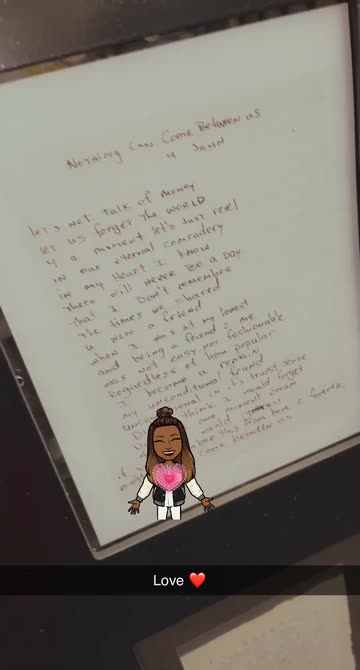 Nothing Can Come Between us
4 John
let's not talk of money
let us forget the WORLD
4 a moment let's Just revel
in our eternal comradery
in my Heart I know
there will never be a day
that I Don't remember
the times we shared
u were a friend
when I was at my lowest
and being a friend 2 me
was not easy or fashionable
Regardless of how popular
I become u remain
my unconditional friend
unconditional in its truest sense
think I would forget
one moment dream
would
if this from here 2 forever
come between us
Love ❤️